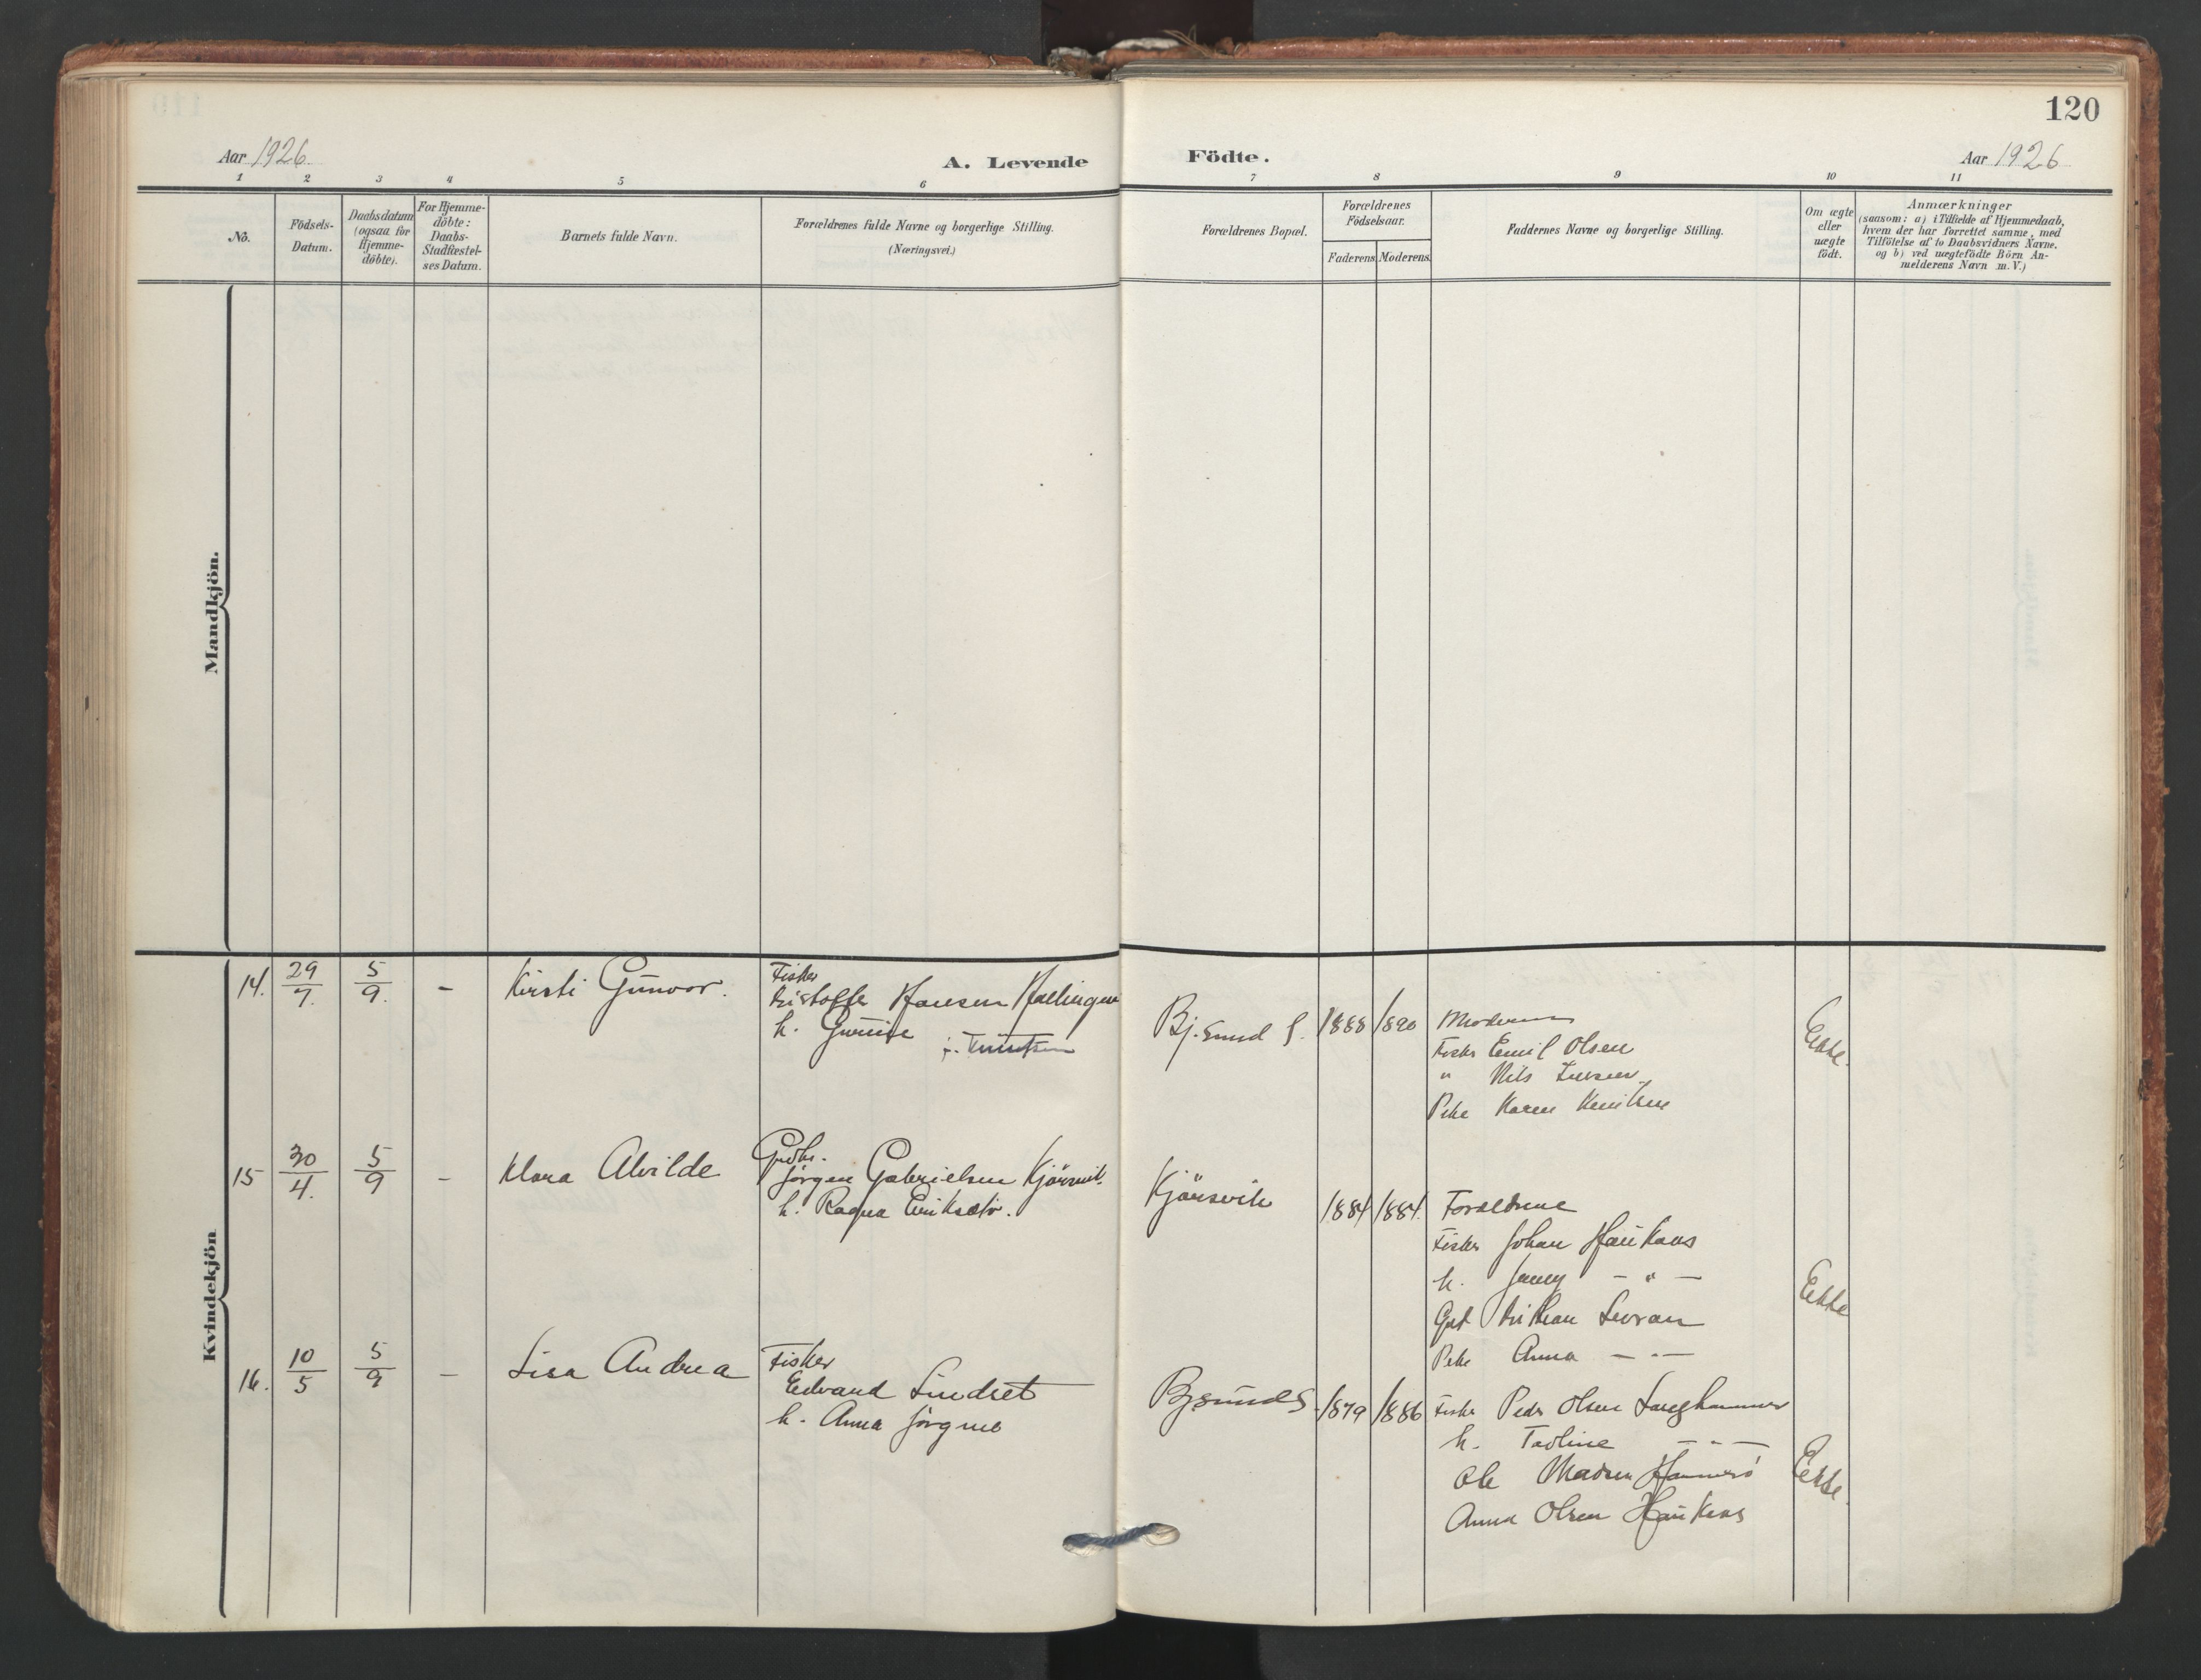 120
Aar 1926.
A. Levende
Födte.
Aar 1926
1 2 3 4 5 6 7 8 9 10 11
No.
Födsels-
Datum.
Daabsdatum
(ogsaa for
Hjemme-
döbte).
For Hjemme-
döbte:
Daabs-
Stadfæstel-
ses Datum.
Barnets fulde Navn.
Forældrenes fulde Navne og borgerlige Stilling.
(Næringsvei.)
Forældrenes Bopæl.
Forældrenes
Födselsaar.
Faderens. Moderens.
Faddernes Navne og borgerlige Stilling.
Om ægte
eller
uægte
födt.
Anmærkninger
(saasom: a) i Tilfælde af Hjemmedaab,
hvem der har forrettet samme, med
Tilföielse af to Daabsvidners Navne.
og b) ved uægtefödte Börn An-
melderens Navn m.V.)
Mandkjön.
Kvindekjön
14. 29/7. 5/9. -
Kirsti Gunvor.
Fisker
Kristoffer Hansen
h.
f. Knutsen
Bj.sund S.
1888 1890
Moderen
Fisker Emil Olsen
" Nils
Pike Karen Knutsen
Ekte.
15 30/4. 5/9 -
Klara Alvilde
Grdbr.
Jörgen Gabrielsen Kjörsvik.
h. Ragna Eriksdtr.
Kjörsvik
1884 1884.
Foreldrene
Fisker Johan Haukaas
h. Jenny - " -
Gut Kristian
Pike Anna - " -
Ekte
16. 10/5 5/9 -
Lisa Andrea
Fisker
Edvard Lindset
h. Anna Jörgine
Bj.sund S.
1879 1886
Fisker Peder Olsen Langhammer
h. - " -
Ole Madsen Hammerö
Anna Olsen Haukaas
Ekte.